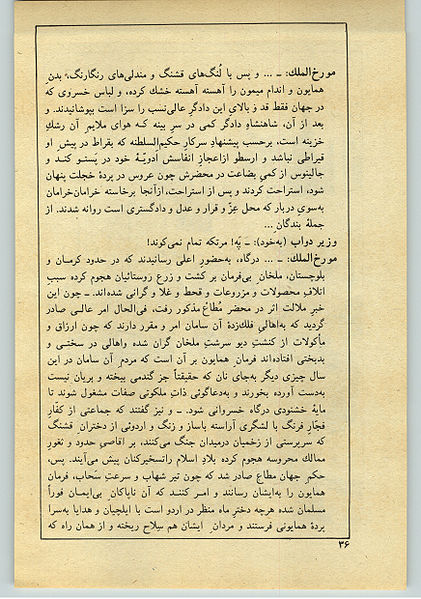 مورخ‌الملك: ــ ... و پس با لُنگ‌های قشنگ و مندلی‌های رنگارنگ، بدن
همایون و اندام میمون را آهسته آهسته خشك کرده، و لباس خسروی که
در جهان فقط قد و بالای این دادگر عالی‌نسب را سزا است بپوشانیدند. و
بعد از آن، شاهنشاه دادگر کمی در سر بینه که هوای ملایم آن رشك
خزینه است، برحسب پیشنهاد سرکار حکیم‌السلطنه که بقراط در پیش او
قیراطی نباشد و ارسطو ازاعجاز انفاسش ادویهٔ خود در پستو کند و
جالینوس از کمیِ بضاعت در محضرش چون عروس در پردهٔ خجلت پنهان
شود، استراحت کردند و پس از استراحت، ازآنجا برخاسته خرامان‌خرامان
به‌سوی دربار که محل عزّ و قرار و عدل و دادگستری است روانه شدند. از
جملهٔ بندگان ...
وزیر دواب (به‌خود): ــ پَه! مرتکه تمام نمی‌کوند!
مورخ‌الملك: ــ ... درگاه، به‌حضور اعلی رسانیدند که در حدود کرمان و
بلوچستان، ملخان بی‌فرمان بر کشت و زرع روستائیان هجوم کرده سبب
اتلاف محصولات و مزروعات و قحط و غلا و گرانی شده‌اند. ــ چون این
خبر ملالت اثر در محضر مُطاع مذکور رفت، فی‌الحال امر عالـی صادر
گردید که به‌اهالی فلك‌زدهٔ آن سامان امر و مقرر دارند که چون ارزاق و
مأکولات از کنشتِ دیو سرشتِ ملخان گران شده واهالی در سختـی و
بدبختی افتاده‌اند فرمان همایون بر آن است که مردم آن سامان در این
سال چیزی دیگر به‌جای نان که حقیقتاً جز گندمی بیخته و بریان نیست
به‌دست آورده بخورند و به‌دعاگوئی ذات ملکونی صفات مشغول شوند تا
مایهٔ خشنودی درگاه خسروانی شود. ــ و نیز گفتند که جماعتی از کفّار
فجّار فرنگ با لشگری آراسته باساز و زنگ و اردوئی از دختران قشنگ
که سرپرستی از زخمیان درمیدان جنگ می‌کنند، بر اقاصی حدود و ثغور
ممالك محروسه هجوم کرده بلاد اسلام راتسخیرکنان پیش می‌آیند. پس،
حکم جهان مطاع صادر شد که چون تیر شهاب و سرعتِ سَحاب، فرمان
همایون را به‌ایشان رسانند و امر کنند که آن ناپاکان بی‌ایمان فوراً
مسلمان شده هرچه دختر ماه منظر در اردو است با ایلچیان و هدایا به‌سرا
پردهٔ همایونی فرستند و مردان ایشان هم سلاح ریخته و از همان راه که
۳۶